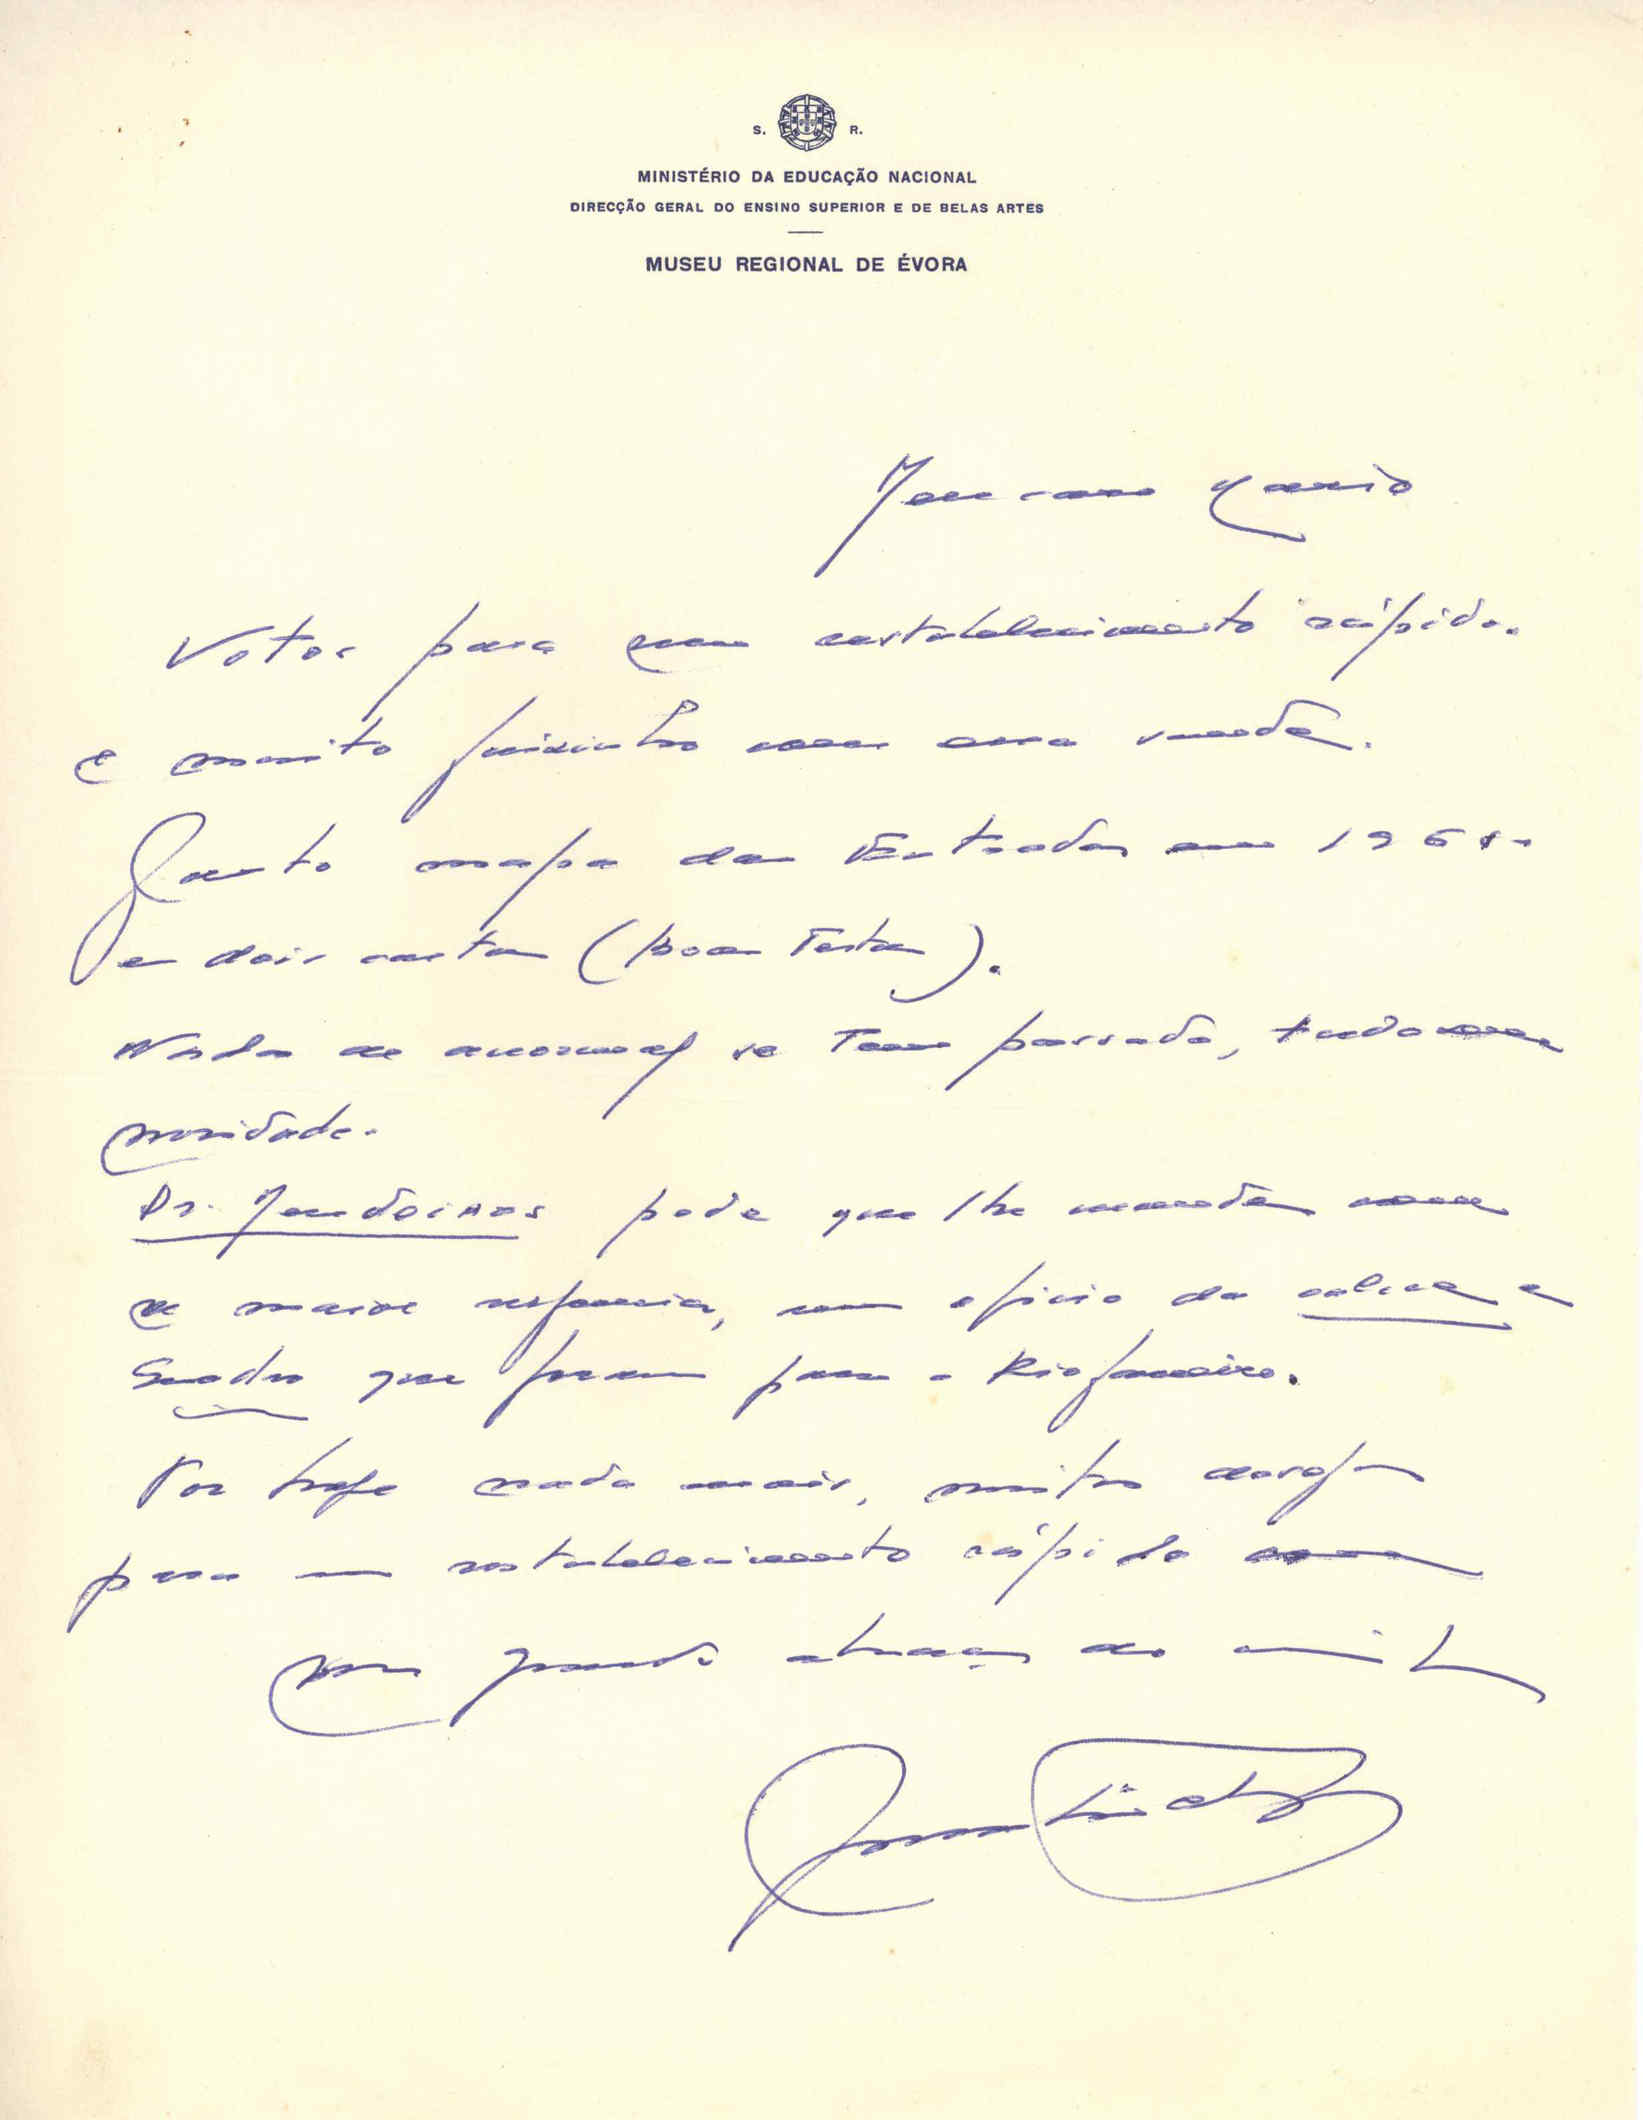 S. R.
MINISTÉRIO DA EDUCAÇÃO NACIONAL
DIRECÇÃO GERAL DO ENSINO SUPERIOR E DE BELAS ARTES
MUSEU REGIONAL DE ÉVORA
Meu caro Mário
Votos para um restabelecimento rápido.
e muito juizinho com essa saude.
Junto mapa das Entradas em 196
e dois cartas (boas Festas).
Nada de anormal se tem passado, tudo em
novidade.
Dr. pede que lhe mandem com
a maior urgencia, um oficio da e
Quadro que foram para o Rio Janeiro.
Por hoje nada mais, muitos desejos
para um restabelecimento rápido com
um grande abraço do amigo